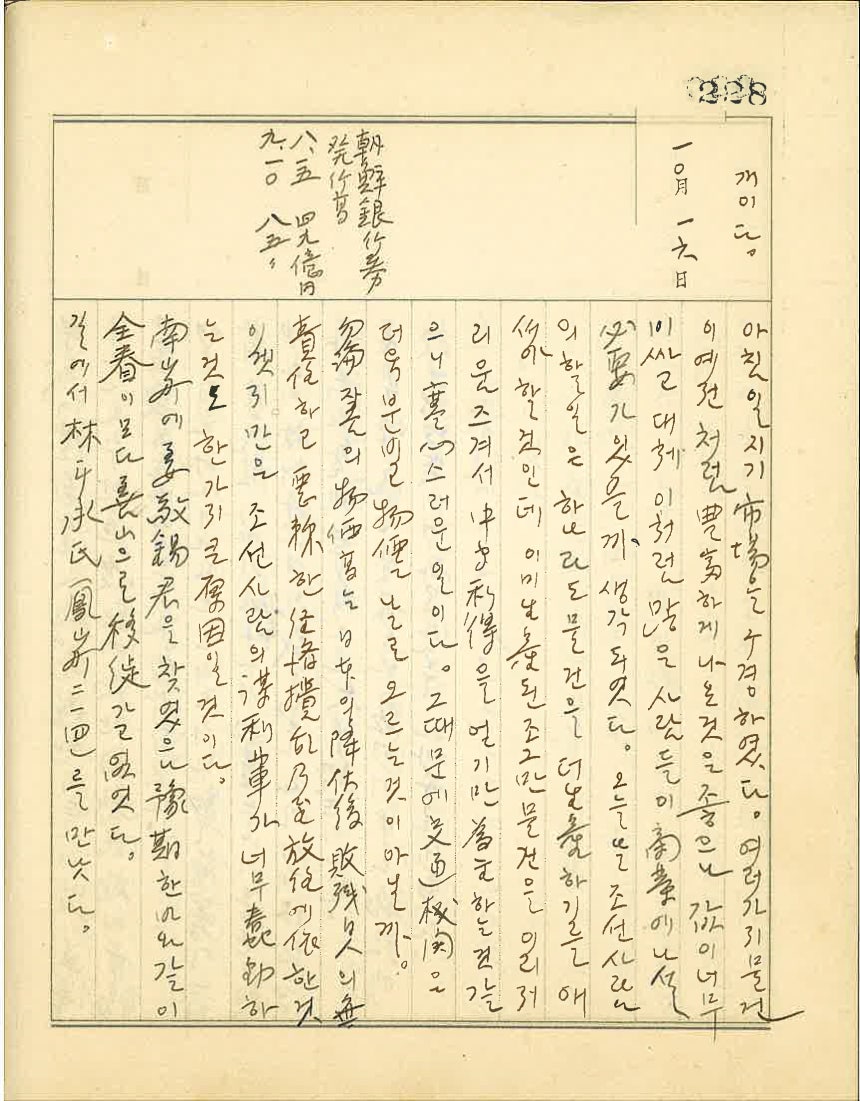 228
개이다。
一〇月 一六日
朝鮮銀行券
発行高
八.一五 四九億円
九.一〇 八五〃
아침일지기 市場을 구경하였다。여러가지물건
이 예전처럼 豊富하게 나온것은 좋으나 값이너무
비싸고 대체 이처럼 많은 사람들이 商業에 나설
必要가 있을까 생각되엿다。오늘날 조선사람
의 할일은 하나라도 물건을 더生産하기를 애
써야할것인데 이미 生産된 조그만 물건을 이리저
리 옴즈겨서 中間利得을 얻기만 爲主하는것같
으니 寒心스러운일이다。그때문에 交通機関은
더욱 분빌 物価 날로 오르는것이 아닐까。
勿論 의 物価高는 日本의 降伏後 敗残日人의 無
責任하고 悪辣한 経済攪乱乃至放任에依한것
이겟지만은 조선사람의 謀利輩가 너무 蠢動하
는것도 한가지 큰 原因일것이다。
南山町에 姜敬錫君을 찾엇으나 豫期한바와같이
全春이모다 釜山으로 移徙가고 없엇다。
길에서 林斗承氏 를 만낫다。